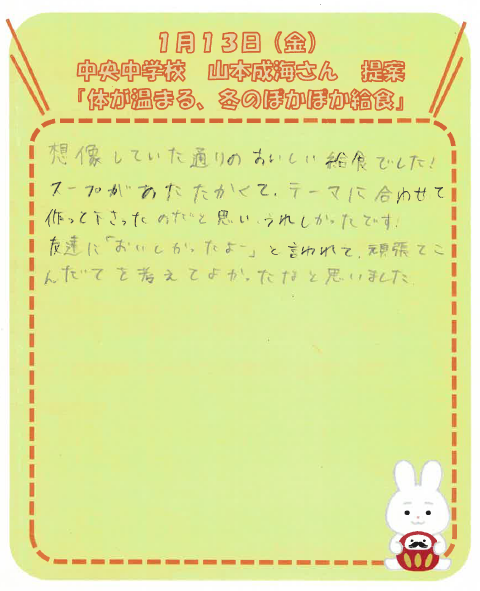 1月13日（金）
中央中学校　山本成海さん　提案
「体が温まる、冬のぽかぽか給食」
想像していた通りのおいしい給食でした！
スープがあたたかくて、テーマに合わせて
作って下さったのだと思い、うれしかったです！
友達に「おいしかったよー」と言われて、頑張てこ
んだてを考えてよかったなと思いました。